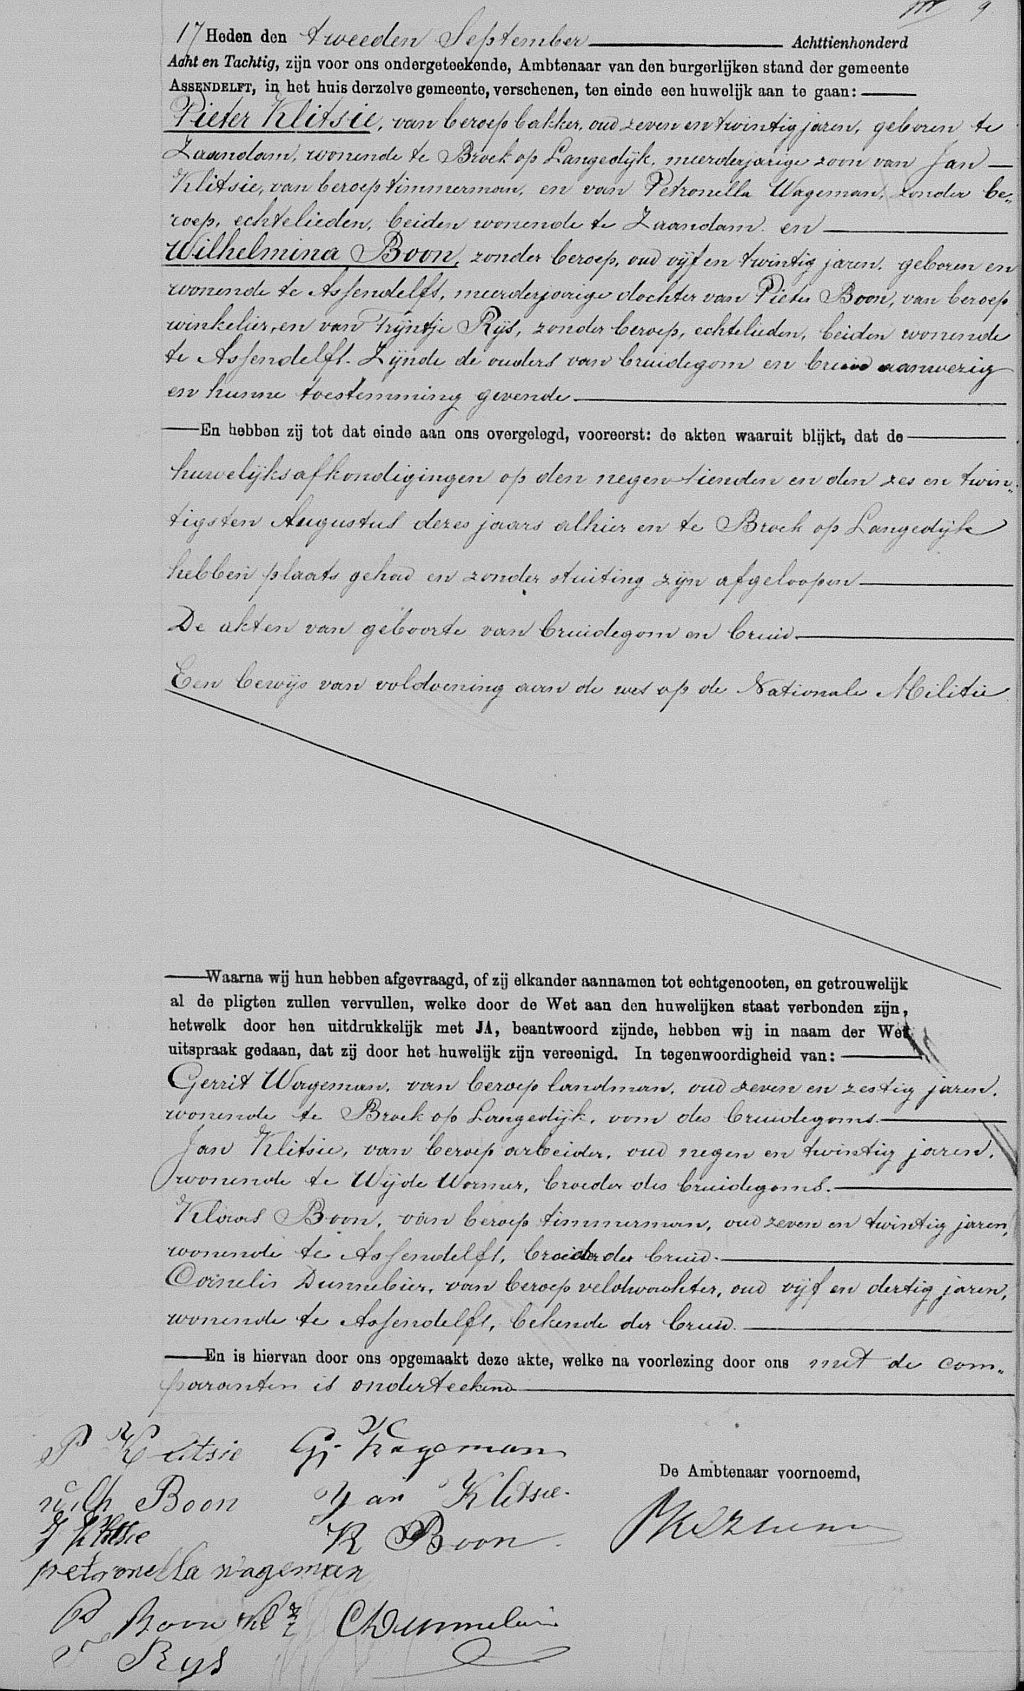 9
17 Heden den tweeden September Achttienhonderd
Acht en Tachtig, zijn voor ons ondergeteekende, Ambtenaar van den burgerlijken stand der gemeente
ASSENDELFT, in het huis derzelve gemeente, verschenen, ten einde een huwelijk aan te gaan:
Pieter Klitsie, van beroep bakker, oud zeven en twintig jaren, geboren te
Zaandam, wonende te Broek op Langedijk, meerderjarige zoon van Jan
Klitsie, van beroep timmerman, en van Petronella Wageman, zonder be-
roep, echtelieden, beiden wonende te Zaandam en
Wilhelmina Boon, zonder beroep, oud vijf en twintig jaren, geboren en
wonende te Assendelft, meerderjarige dochter van Pieter Boon, van beroep
winkelier, en van Trijntje Rijs, zonder beroep, echtelieden, beiden wonende
te Assendelft. Zijnde de ouders van bruidegom en bruid aanwezig
en hunne toestemming gevende.
En hebben zij tot dat einde aan ons overgelegd, vooreerst: de akten waaruit blijkt, dat de
huwelijksafkondigingen op den negentienden en den zes en twin-
tigsten Augustus dezes jaars alhier en te Broek op Langedijk
hebben plaats gehad en zonder stuiting zijn afgeloopen
De akten van geboorte van bruidegom en bruid.
Een bewijs van voldoening aan de wet op de Nationale Militie
Waarna wij hun hebben afgevraagd, of zij elkander aannamen tot echtgenooten, en getrouwelijk
al de pligten zullen vervullen, welke door de Wet aan den huwelijken staat verbonden zijn,
hetwelk door hen uitdrukkelijk met JA, beantwoord zijnde, hebben wij in naam der Wet
uitspraak gedaan, dat zij door het huwelijk zijn vereenigd. In tegenwoordigheid van:
Gerrit Wageman, van beroep landman, oud zeven en zestig jaren,
wonende te Broek op Langedijk, oom des bruidegoms.
Jan Klitsie, van beroep arbeider, oud negen en twintig jaren,
wonende te Wijde Wormer, broeder des bruidegoms.
Klaas Boon, van beroep timmerman, oud zeven en twintig jaren,
wonende te Assendelft, broeder der bruid.
Cornelis Dunnebier, van beroep veldwachter, oud vijf en dertig jaren,
wonende te Assendelft, bekende der bruid.
En is hiervan door ons opgemaakt deze akte, welke na voorlezing door ons met de com-
paranten is onderteekend
P Klitsie G. Wageman
De Ambtenaar voornoemd,
Wilh Boon Jan Klitsie.
J Klitsie K Boon.
petronella wageman
P Boon C Dunnebier
T Rijs